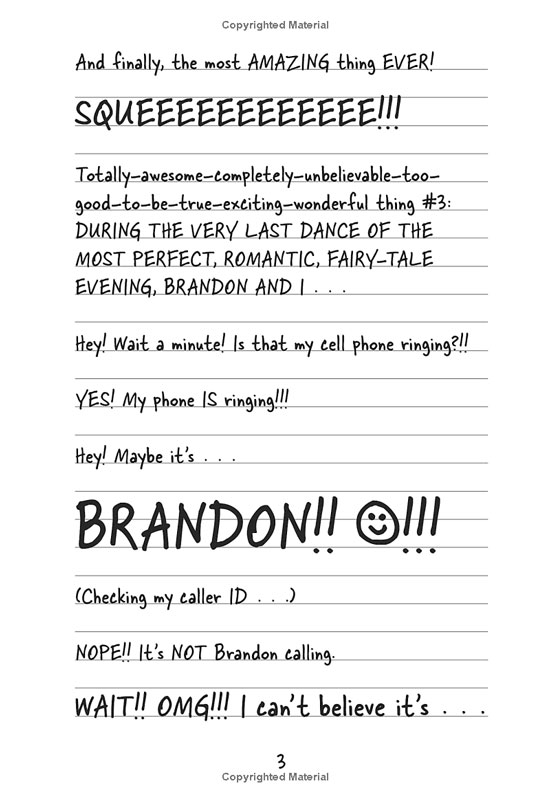 Copyrighted Material
And finally, the most AMAZING thing EVER!
SQUEEEEEEEEEEEE!!!
Totally–awesome–completely–unbelievable–too–
good–to–be–true–exciting–wonderful thing #3:
DURING THE VERY LAST DANCE OF THE
MOST PERFECT, ROMANTIC, FAIRY–TALE
EVENING, BRANDON AND I . . .
Hey! Wait a minute! Is that my cell phone ringing?!!
YES! My phone IS ringing!!!
Hey! Maybe it's . . .
BRANDON!! ☺!!!
(Checking my caller ID . . .)
NOPE!! It's NOT Brandon calling.
WAIT!! OMG!!! I can't believe it's . . .
3
Copyrighted Material